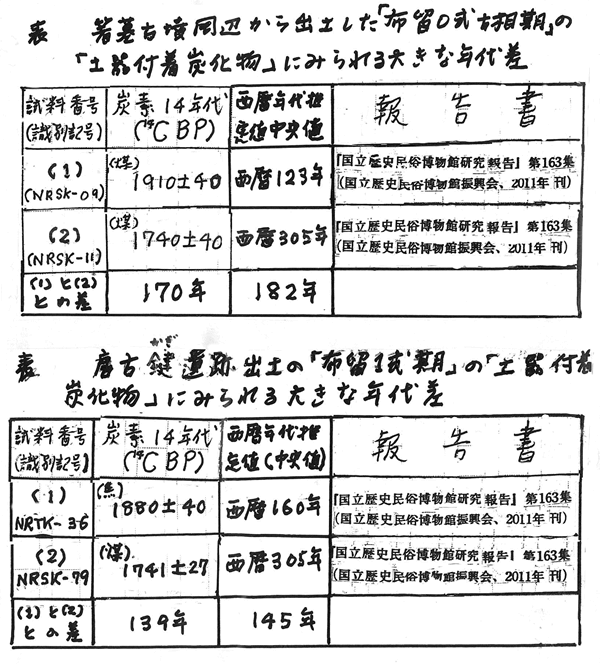 表 箸墓古墳周辺から出土した「布留0式古相期」の
「土器付着炭化物」にみられる大きな年代差
試料番号 炭素14年代 西暦年代推 報告書
(識別記号) (¹⁴C BP) 定値中央値
(1) (煤) 1910±40 西暦123年 『国立歴史民俗博物館研究報告』第163集
(NRSK-09) (国立歴史民俗博物館振興会、2011年刊)
(2) (煤) 1740±40 西暦305年 『国立歴史民俗博物館研究報告』第163集
(NRSK-11) (国立歴史民俗博物館振興会、2011年刊)
(1)と(2) 170年 182年
との差
表 唐古鍵遺跡出土の「布留1式期」の「土器付着
かぎ
炭化物」にみられる大きな年代差
試料番号 炭素14年代 西暦年代推 報告書
(識別記号) (¹⁴C BP) 定値(中央値)
(1) (焦) 1880±40 西暦160年 『国立歴史民俗博物館研究報告』第163集
NRTK-36 (国立歴史民俗博物館振興会、2011年刊)
(2) (煤) 1741±27 西暦305年 『国立歴史民俗博物館研究報告』第163集
NRSK-79 (国立歴史民俗博物館振興会、2011年刊)
(1)と(2) 139年 145年
との差